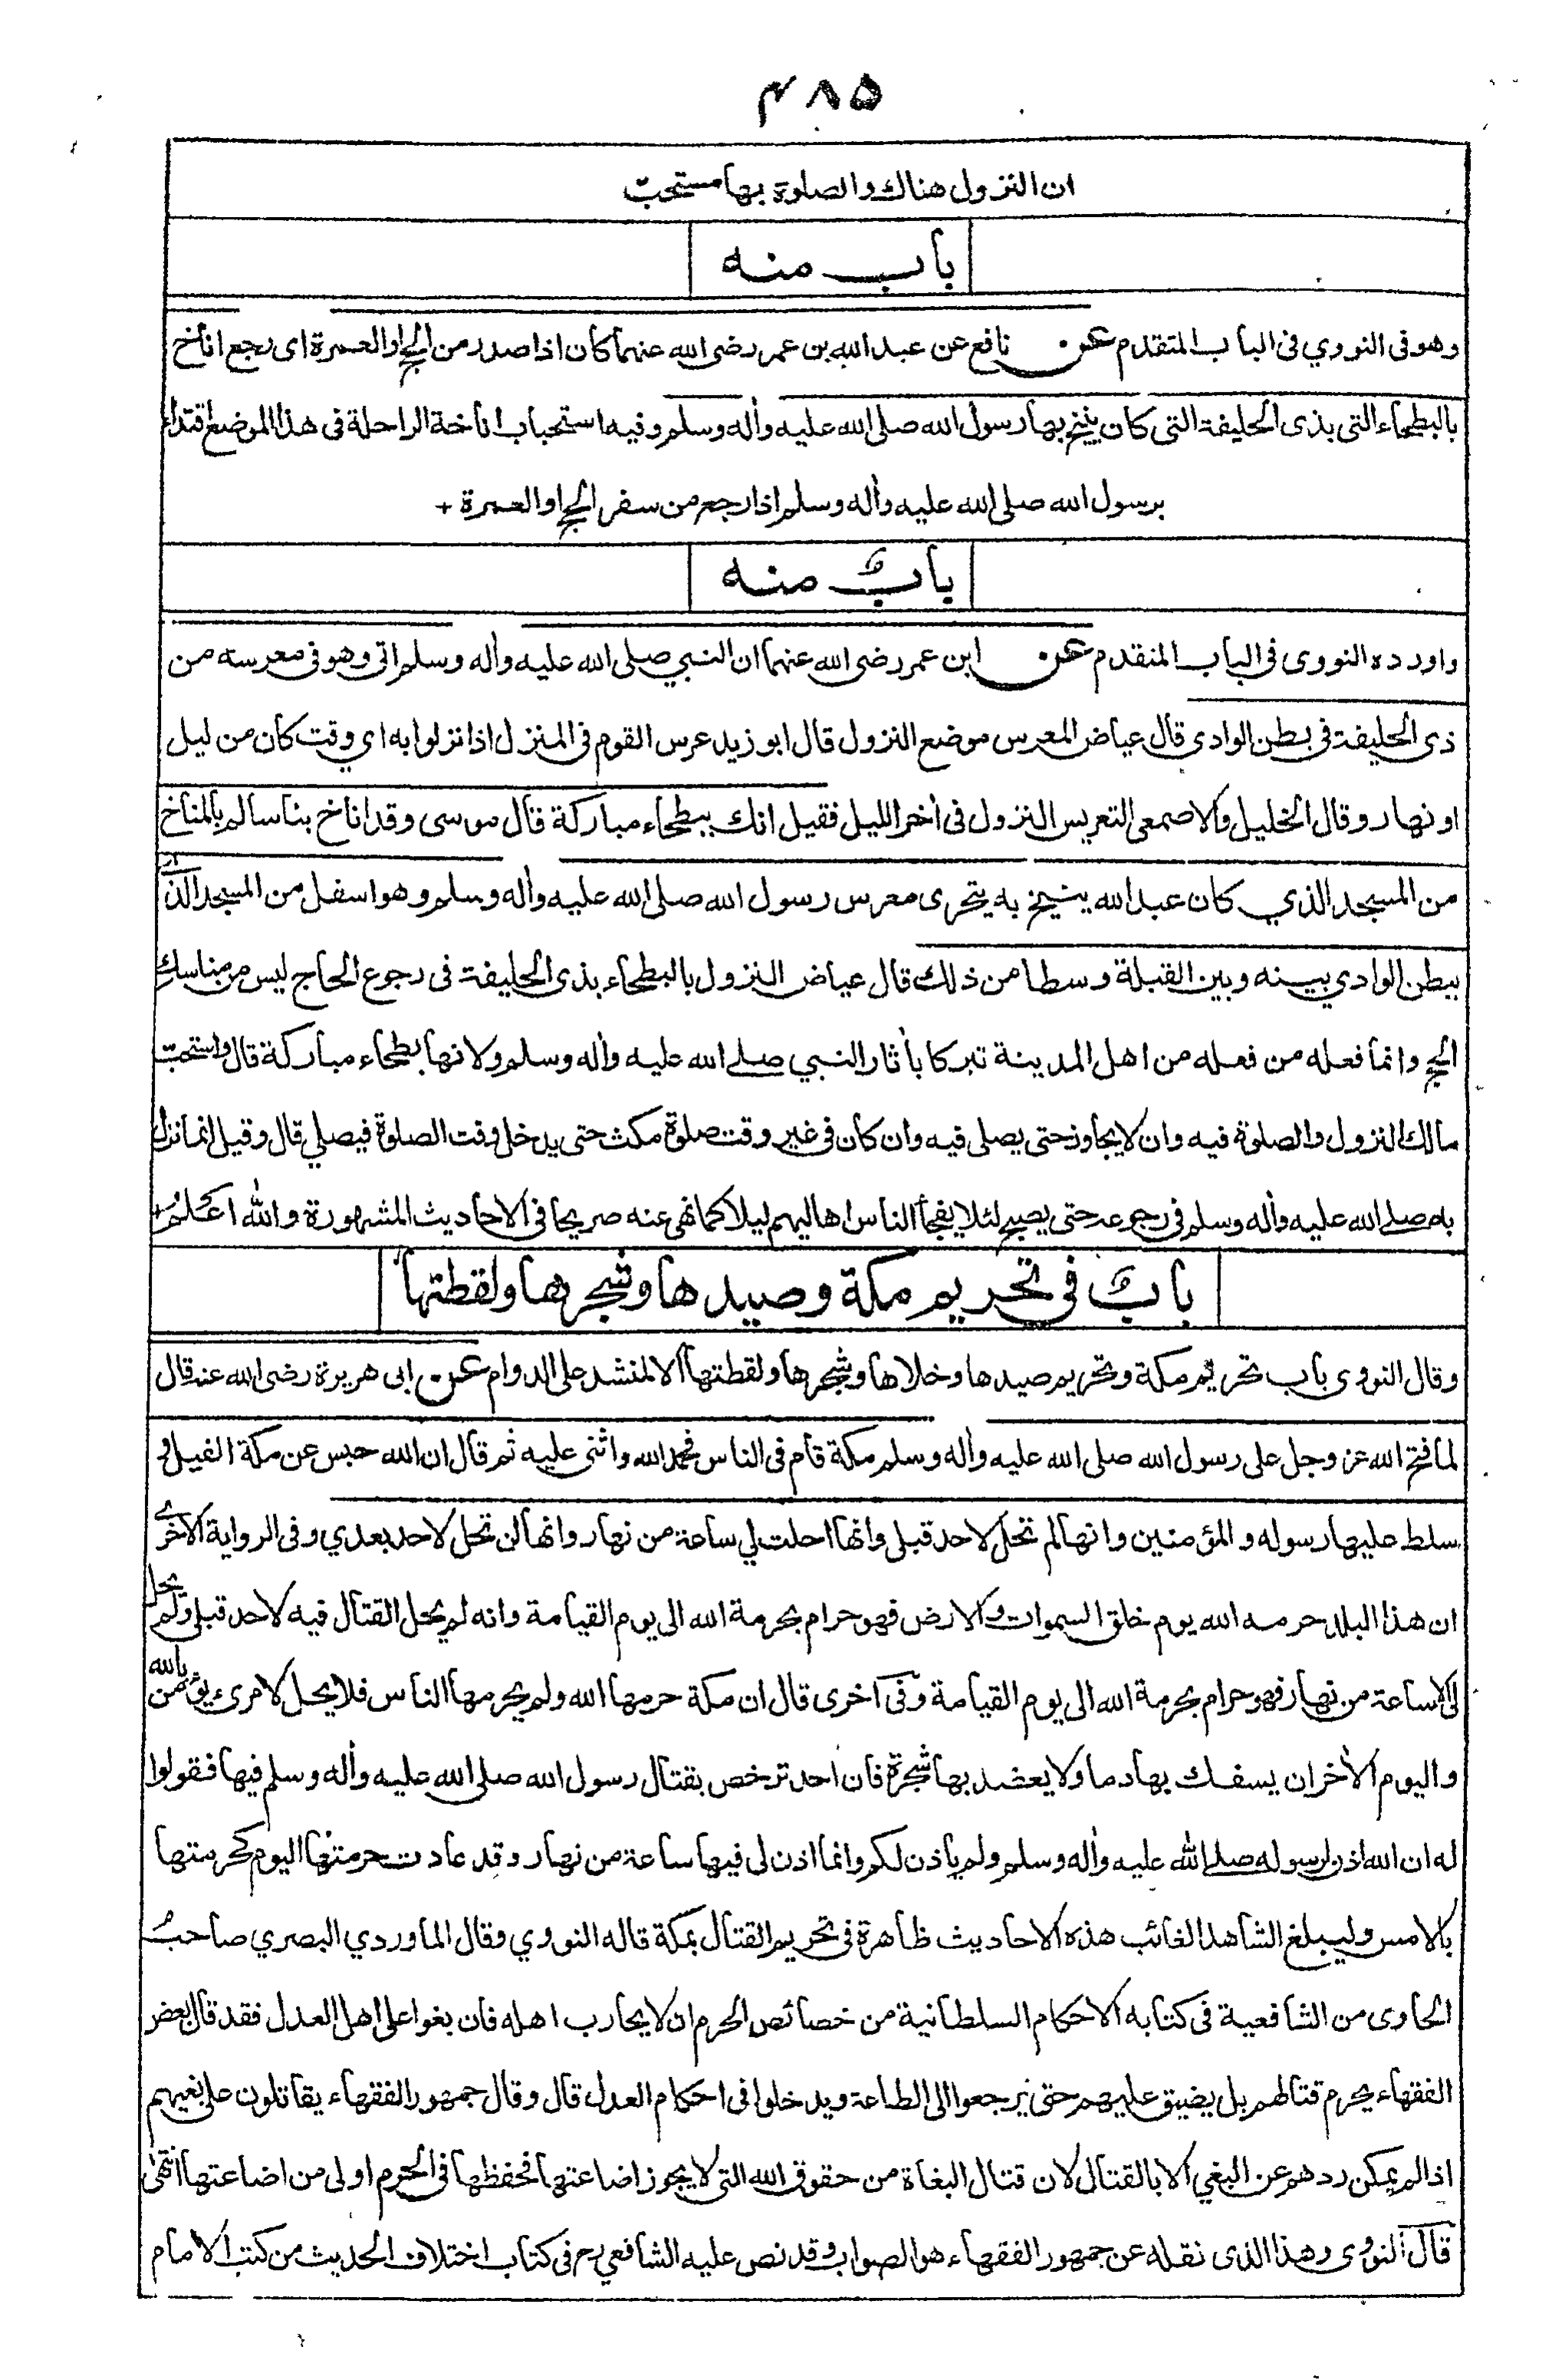 ٤٨٥
ان النزول هناك والصلوة بها مستحب
باب منه
وهو فى النووي فى الباب المتقدم عن نافع عن عبد الله بن عمر رضى الله عنهما كان اذا صدر من الحج او العمرة اى رجع اناخ
بالبطحاء التى بذى الحليفة التى كان ينيخ بها رسول الله صلى الله عليه وأله وسلم وفيه استحباب اناخة الراحلة فى هذا الموضع اقتداء
برسول الله صلى الله عليه وأله وسلم اذا رجع من سفر الحج او العمرة +
باب منه
واورده النووى فى الباب المتقدم عن ابن عمر رضى الله عنهما ان النبي صلى الله عليه وأله وسلم اتى وهو فى معرسه من
ذى الحليفة فى بطن الوادى قال عياض المعرس موضع النزول قال ابو زيد عرس القوم فى المنزل اذا نزلوا به اي وقت كان من ليل
او نهار وقال الخليل والاصمعى التعريس النزول فى أخر الليل فقيل انك ببطحاء مباركة قال موسى وقد اناخ بنا سالم بالمناخ
من المسجد الذي كان عبد الله ينيخ به يتحرى معرس رسول الله صلى الله عليه وأله وسلم وهو اسفل من المسجد الذى
ببطن الوادي بينه وبين القبلة وسطا من ذلك قال عياض النزول بالبطحاء بذى الحليفة فى رجوع الحاج ليس من مناسك
الحج وانما فعله من فعله من اهل المدينة تبركا بأثار النبي صلى الله عليه وأله وسلم ولانها بطحاء مباركة قال واستحب
مالك النزول والصلوة فيه وان لا يجاوز حتى يصلى فيه وان كان فى غير وقت صلوة مكث حتى يدخل وقت الصلوة فيصلي قال وقيل انما نزل
به صلى الله عليه وأله وسلم فى رجوعه حتى يصبح لئلا يفجأ الناس اهاليهم ليلا كما نهى عنه صريحا فى الاحاديث المشهورة والله اعلم
باب فى تحريم مكة وصيدها وشجرها ولقطتها
وقال النووى باب تحريم مكة وتحريم صيدها وخلاها وشجرها ولقطتها الا لمنشد على الدوام عن ابى هريرة رضى الله عنه قال
لما فتح الله عز وجل على رسول الله صلى الله عليه وأله وسلم مكة قام فى الناس فحمد الله واثنى عليه ثم قال ان الله حبس عن مكة الفيل و
سلط عليها رسوله والمؤمنين وانها لم تحل لاحد قبلى وانها احلت لي ساعة من نهار وانها لن تحل لاحد بعدي وفى الرواية الاخرى
ان هذا البلد حرمه الله يوم خلق السموات والارض فهو حرام بحرمة الله الى يوم القيامة وانه لم يحل القتال فيه لاحد قبلى ولم يحل
لى الا ساعة من نهار فهو حرام بحرمة الله الى يوم القيامة وفى اخرى قال ان مكة حرمها الله ولم يحرمها الناس فلا يحل لامرىء يؤمن بالله
واليوم الأخر ان يسفك بها دما ولا يعضد بها شجرة فان احد ترخص بقتال رسول الله صلى الله عليه وأله وسلم فيها فقولوا
له ان الله اذن لرسوله صلى الله عليه وأله وسلم ولم ياذن لكم وانما اذن لى فيها ساعة من نهار وقد عادت حرمتها اليوم كحرمتها
بالامس وليبلغ الشاهد الغائب هذه الاحاديث ظاهرة فى تحريم القتال بمكة قاله النووي وقال الماوردي البصري صاحب
الحاوى من الشافعية فى كتابه الاحكام السلطانية من خصائص الحرم ان لا يحارب اهله فان بغوا على اهل العدل فقد قال بعض
الفقهاء يحرم قتالهم بل يضيق عليهم حتى يرجعوا الى الطاعة ويدخلوا فى احكام العدل قال وقال جمهور الفقهاء يقاتلون على بغيهم
اذا لم يمكن ردهم عن البغي الا بالقتال لان قتال البغاة من حقوق الله التى لا يجوز اضاعتها فحفظها فى الحرم اولى من اضاعتها انتهى
قال النووى وهذا الذى نقله عن جمهور الفقهاء هو الصواب وقد نص عليه الشافعي رح فى كتاب اختلاف الحديث من كتب الامام